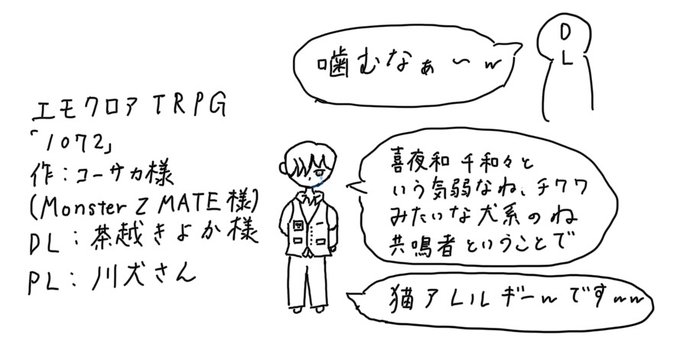 エモクロアTRPG
「1072」
作:コーサカ様
(Monster Z MATE様)
DL:茶越きよか様
PL:川犬さん
DL
噛むなぁ〜w
喜夜和 千和々と
いう気弱なね、チワワ
みたいな犬系のね
共鳴者ということで
猫アレルギーwですww